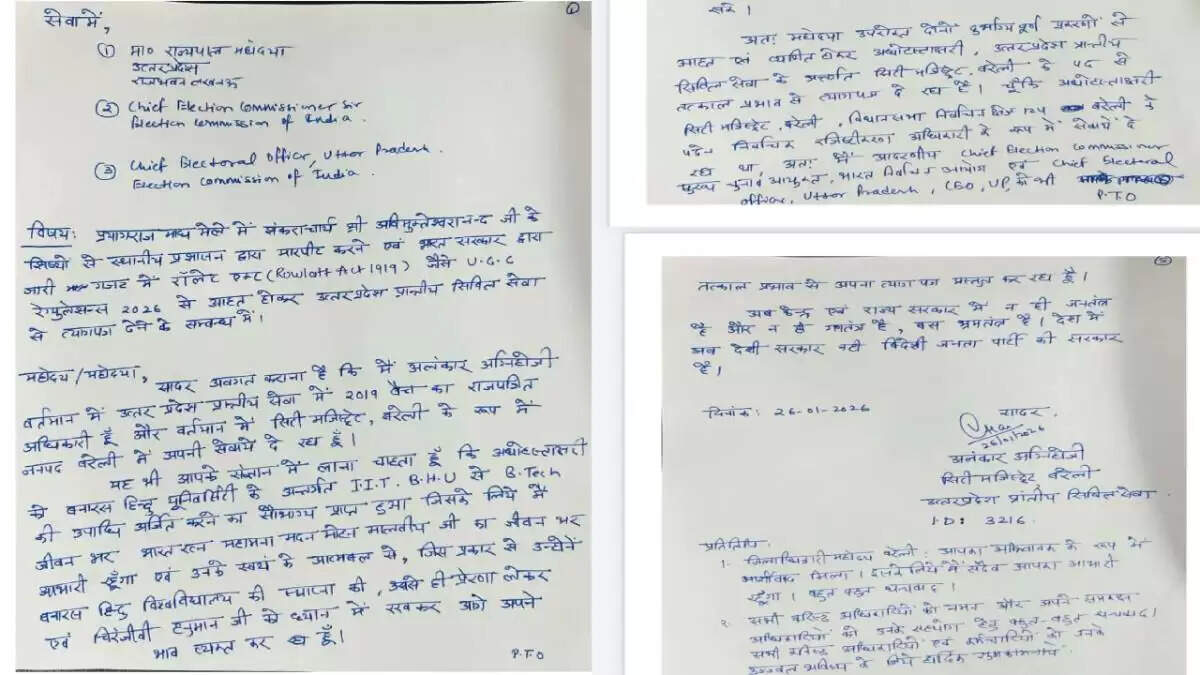 ①
सेवा में,
① मा० राज्यपाल महोदया
उत्तर प्रदेश
राजभवन लखनऊ
② Chief Election Commissioner Sir
Election Commission of India.
③ Chief Electoral Officer, Uttar Pradesh.
Election Commission of India.
विषय: प्रयागराज माघ मेले में शंकराचार्य श्री अविमुक्तेश्वरानन्द जी के
शिष्यों से स्थानीय प्रशासन द्वारा मारपीट करने एवं भारत सरकार द्वारा
जारी गजट में रॉलेट एक्ट (Rowlatt Act 1919) जैसे U.G.C
रेगुलेसन्स 2026 से आहत होकर उत्तर प्रदेश प्रान्तीय सिविल सेवा
से त्यागपत्र देने के सम्बन्ध में।
महोदय/महोदया,
सादर अवगत कराना है कि मैं अलंकार अग्निहोत्री
वर्तमान में उत्तर प्रदेश प्रान्तीय सेवा में 2019 बैच का राजपत्रित
अधिकारी हूँ और वर्तमान में सिटी मजिस्ट्रेट, बरेली के रूप में
जनपद बरेली में अपनी सेवायें दे रहा हूँ।
यह भी आपके संज्ञान में लाना चाहता हूँ कि अधोहस्ताक्षरी
को बनारस हिन्दू यूनिवर्सिटी के अन्तर्गत I.I.T. B.H.U से B.Tech
की उपाधि अर्जित करने का सौभाग्य प्राप्त हुआ जिसके लिये मैं
जीवन भर भारत रत्न महामना मदन मोहन मालवीय जी का जीवन भर
आभारी रहूँगा एवं उनके स्वयं के आत्मबल से, जिस प्रकार से उन्होंने
बनारस हिन्दू विश्वविद्यालय की स्थापना की, उससे ही प्रेरणा लेकर
एवं चिरंजीवी हनुमान जी को ध्यान में रखकर आगे अपने
भाव व्यक्त कर रहा हूँ।
P.T.O
करें।
अतः महोदया उपरोक्त दोनों दुर्भाग्यपूर्ण प्रकरणों से
आहत एवं व्यथित होकर अधोहस्ताक्षरी, उत्तर प्रदेश प्रान्तीय
सिविल सेवा के अन्तर्गत सिटी मजिस्ट्रेट, बरेली के पद से
तत्काल प्रभाव से त्यागपत्र दे रहा है। चूँकि अधोहस्ताक्षरी
सिटी मजिस्ट्रेट, बरेली, विधानसभा निर्वाचन क्षेत्र 124 बरेली के
पदेन निर्वाचक रजिस्ट्रीकरण अधिकारी के रूप में सेवायें दे
रहा था, अतः मैं आदरणीय Chief Election Commissioner
मुख्य चुनाव आयुक्त, भारत निर्वाचन आयोग एवं Chief Electoral
Officer, Uttar Pradesh, CEO, UP को भी
P.T.O
⑤
तत्काल प्रभाव से अपना त्यागपत्र प्रस्तुत कर रहा हूँ।
अब केन्द्र एवं राज्य सरकार में न ही जनतंत्र
है और न ही गणतंत्र है, बस भ्रमतंत्र है। देश में
अब देशी सरकार नहीं विदेशी जनता पार्टी की सरकार
है।
दिनांक: 26-01-2026
सादर,
26/01/2026
अलंकार अग्निहोत्री
सिटी मजिस्ट्रेट, बरेली
उत्तर प्रदेश प्रांतीय सिविल सेवा.
I.D: 3216.
प्रतिलिपि:
1. जिलाधिकारी महोदय बरेली: आपका अभिभावक के रूप में
आशीर्वाद मिला। इसके लिये मैं सदैव आपका आभारी
रहूँगा। बहुत बहुत धन्यवाद।
2. सभी वरिष्ठ अधिकारियों को नमन और अपने समकक्ष
अधिकारियों को उनके सहयोग हेतु बहुत-बहुत धन्यवाद।
सभी कनिष्ठ अधिकारियों एवं कर्मचारियों को उनके
उज्ज्वल भविष्य के लिये हार्दिक शुभकामनायें